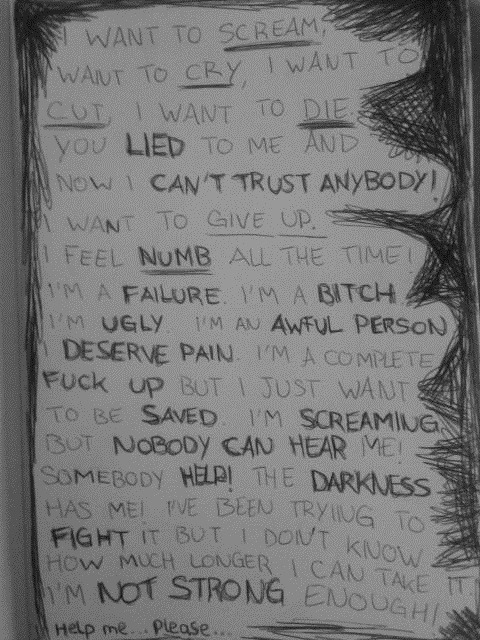 I WANT TO SCREAM,
WANT TO CRY, I WANT TO
CUT, I WANT TO DIE.
YOU LIED TO ME AND
NOW I CAN'T TRUST ANYBODY!
I WANT TO GIVE UP.
I FEEL NUMB ALL THE TIME!
I'M A FAILURE. I'M A BITCH.
I'M UGLY. I'M AN AWFUL PERSON
I DESERVE PAIN. I'M A COMPLETE
FUCK UP BUT I JUST WANT
TO BE SAVED. I'M SCREAMING
BUT NOBODY CAN HEAR ME!
SOMEBODY HELP! THE DARKNESS
HAS ME! I'VE BEEN TRYING TO
FIGHT IT BUT I DON'T KNOW
HOW MUCH LONGER I CAN TAKE IT.
I'M NOT STRONG ENOUGH!
Help me... Please...